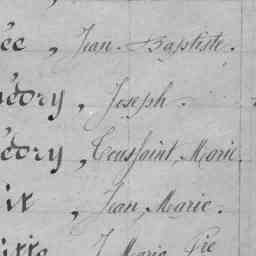 ée, Jean-Baptiste.
édry, Joseph.
édry, Toussaint, Marie.
it, Jean, Marie.
itte, J. Marie, Pie